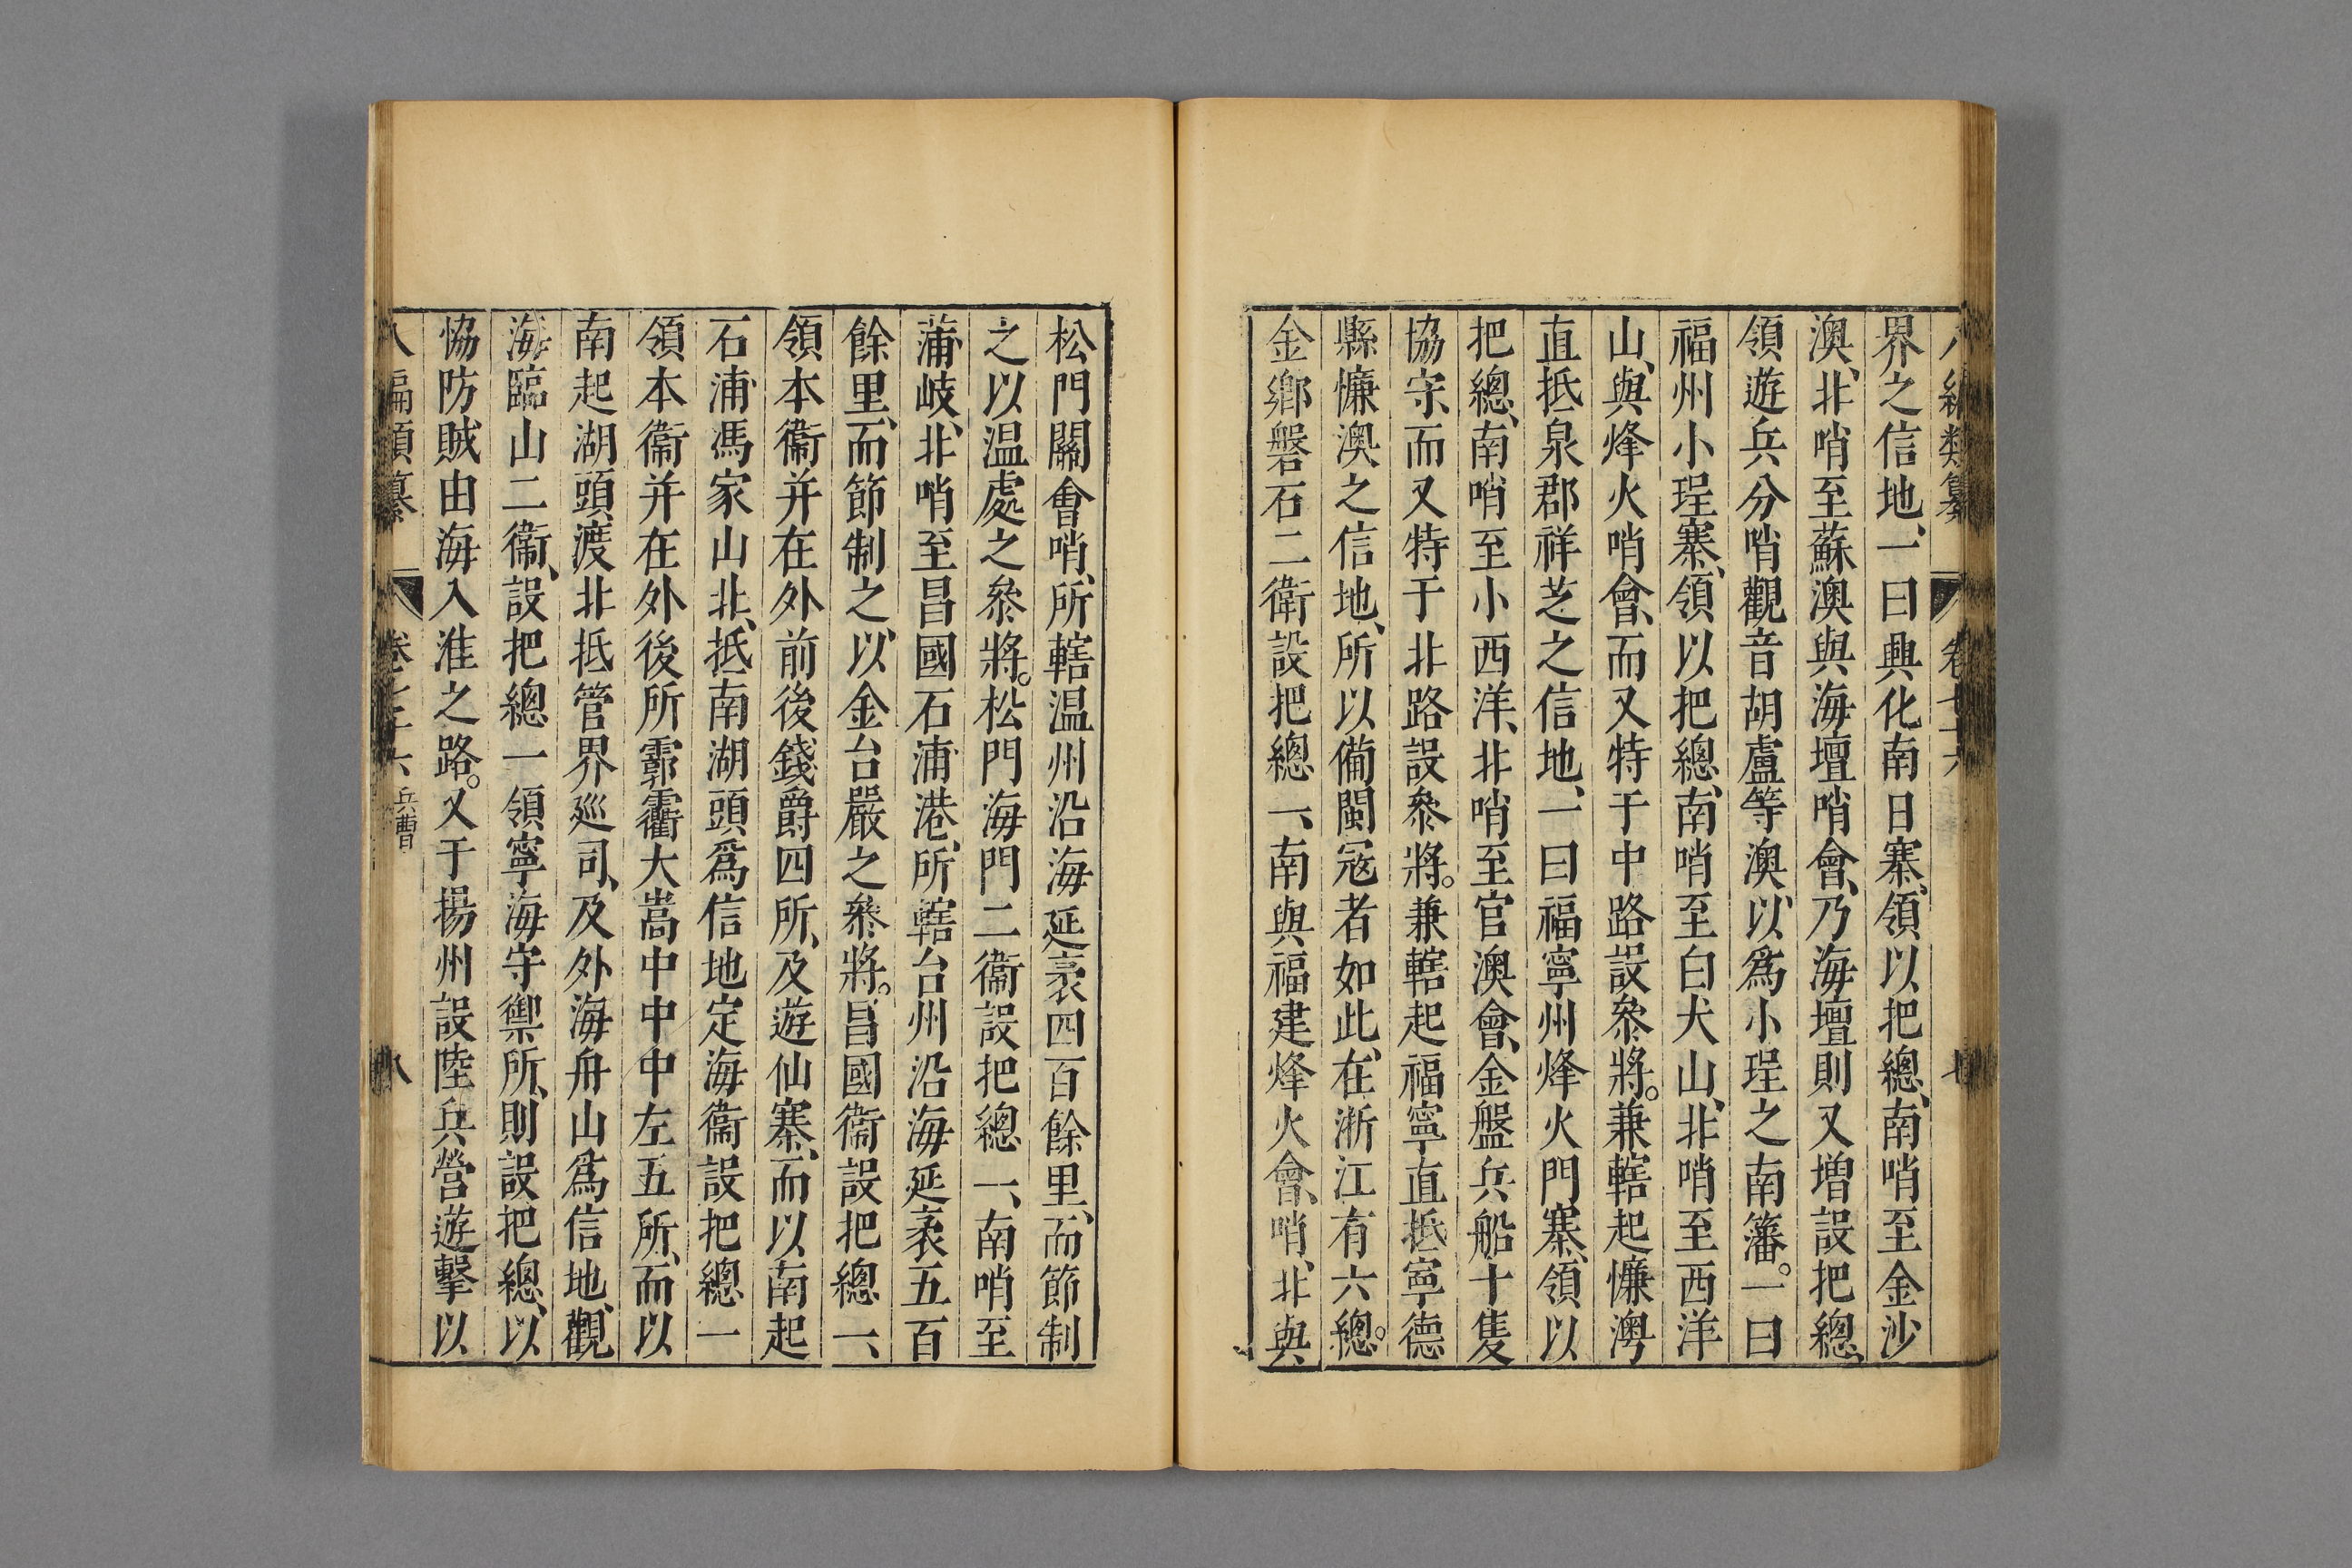 編類纂 卷七十六 七
界之信地、一曰興化南日寨、領以把總、南哨至金沙
澳、北哨至蘇澳與海壇哨會、乃海壇則又增設把總、
領遊兵分哨觀音胡盧等澳、以爲小埕之南籓。一曰
福州小埕寨、領以把總、南哨至白犬山、北哨至西洋
山、與烽火哨會、而又特于中路設叅將。兼轄起慊澚
直抵泉郡祥芝之信地、一曰福寧州烽火門寨、領以
把總、南哨至小西洋、北哨至官澳會、金盤兵船十隻
協守、而又特于北路設叅將。兼轄起福寧直抵寧德
縣慊澳之信地、所以備閩寇者如此、在浙江有六總。
金鄉磐石二衛設把總一、南與福建烽火會、哨、北與
松門關會哨、所轄温州沿海延袤四百餘里、而節制
之以温處之叅將。松門海門二衞設把總一、南哨至
蒲岐、北哨至昌國石浦港、所轄台州沿海延袤五百
餘里、而節制之、以金台嚴之叅將。昌國衞設把總一、
領本衞并在外前後錢爵四所、及遊仙寨、而以南起
石浦馮家山北、抵南湖頭爲信地定海衞設把總一
領本衞并在外後所霩衢大嵩中中中左五所、而以
南起湖頭渡北抵管界巡司、及外海舟山爲信地、觀
海臨山二衞、設把總一領寧海守禦所、則設把總、以
恊防賊由海入淮之路。又于揚州設陸兵營遊擊以
八編類纂 卷七十六 兵曹 八